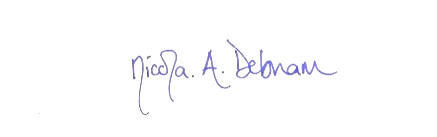 Nicola. A. Debnam